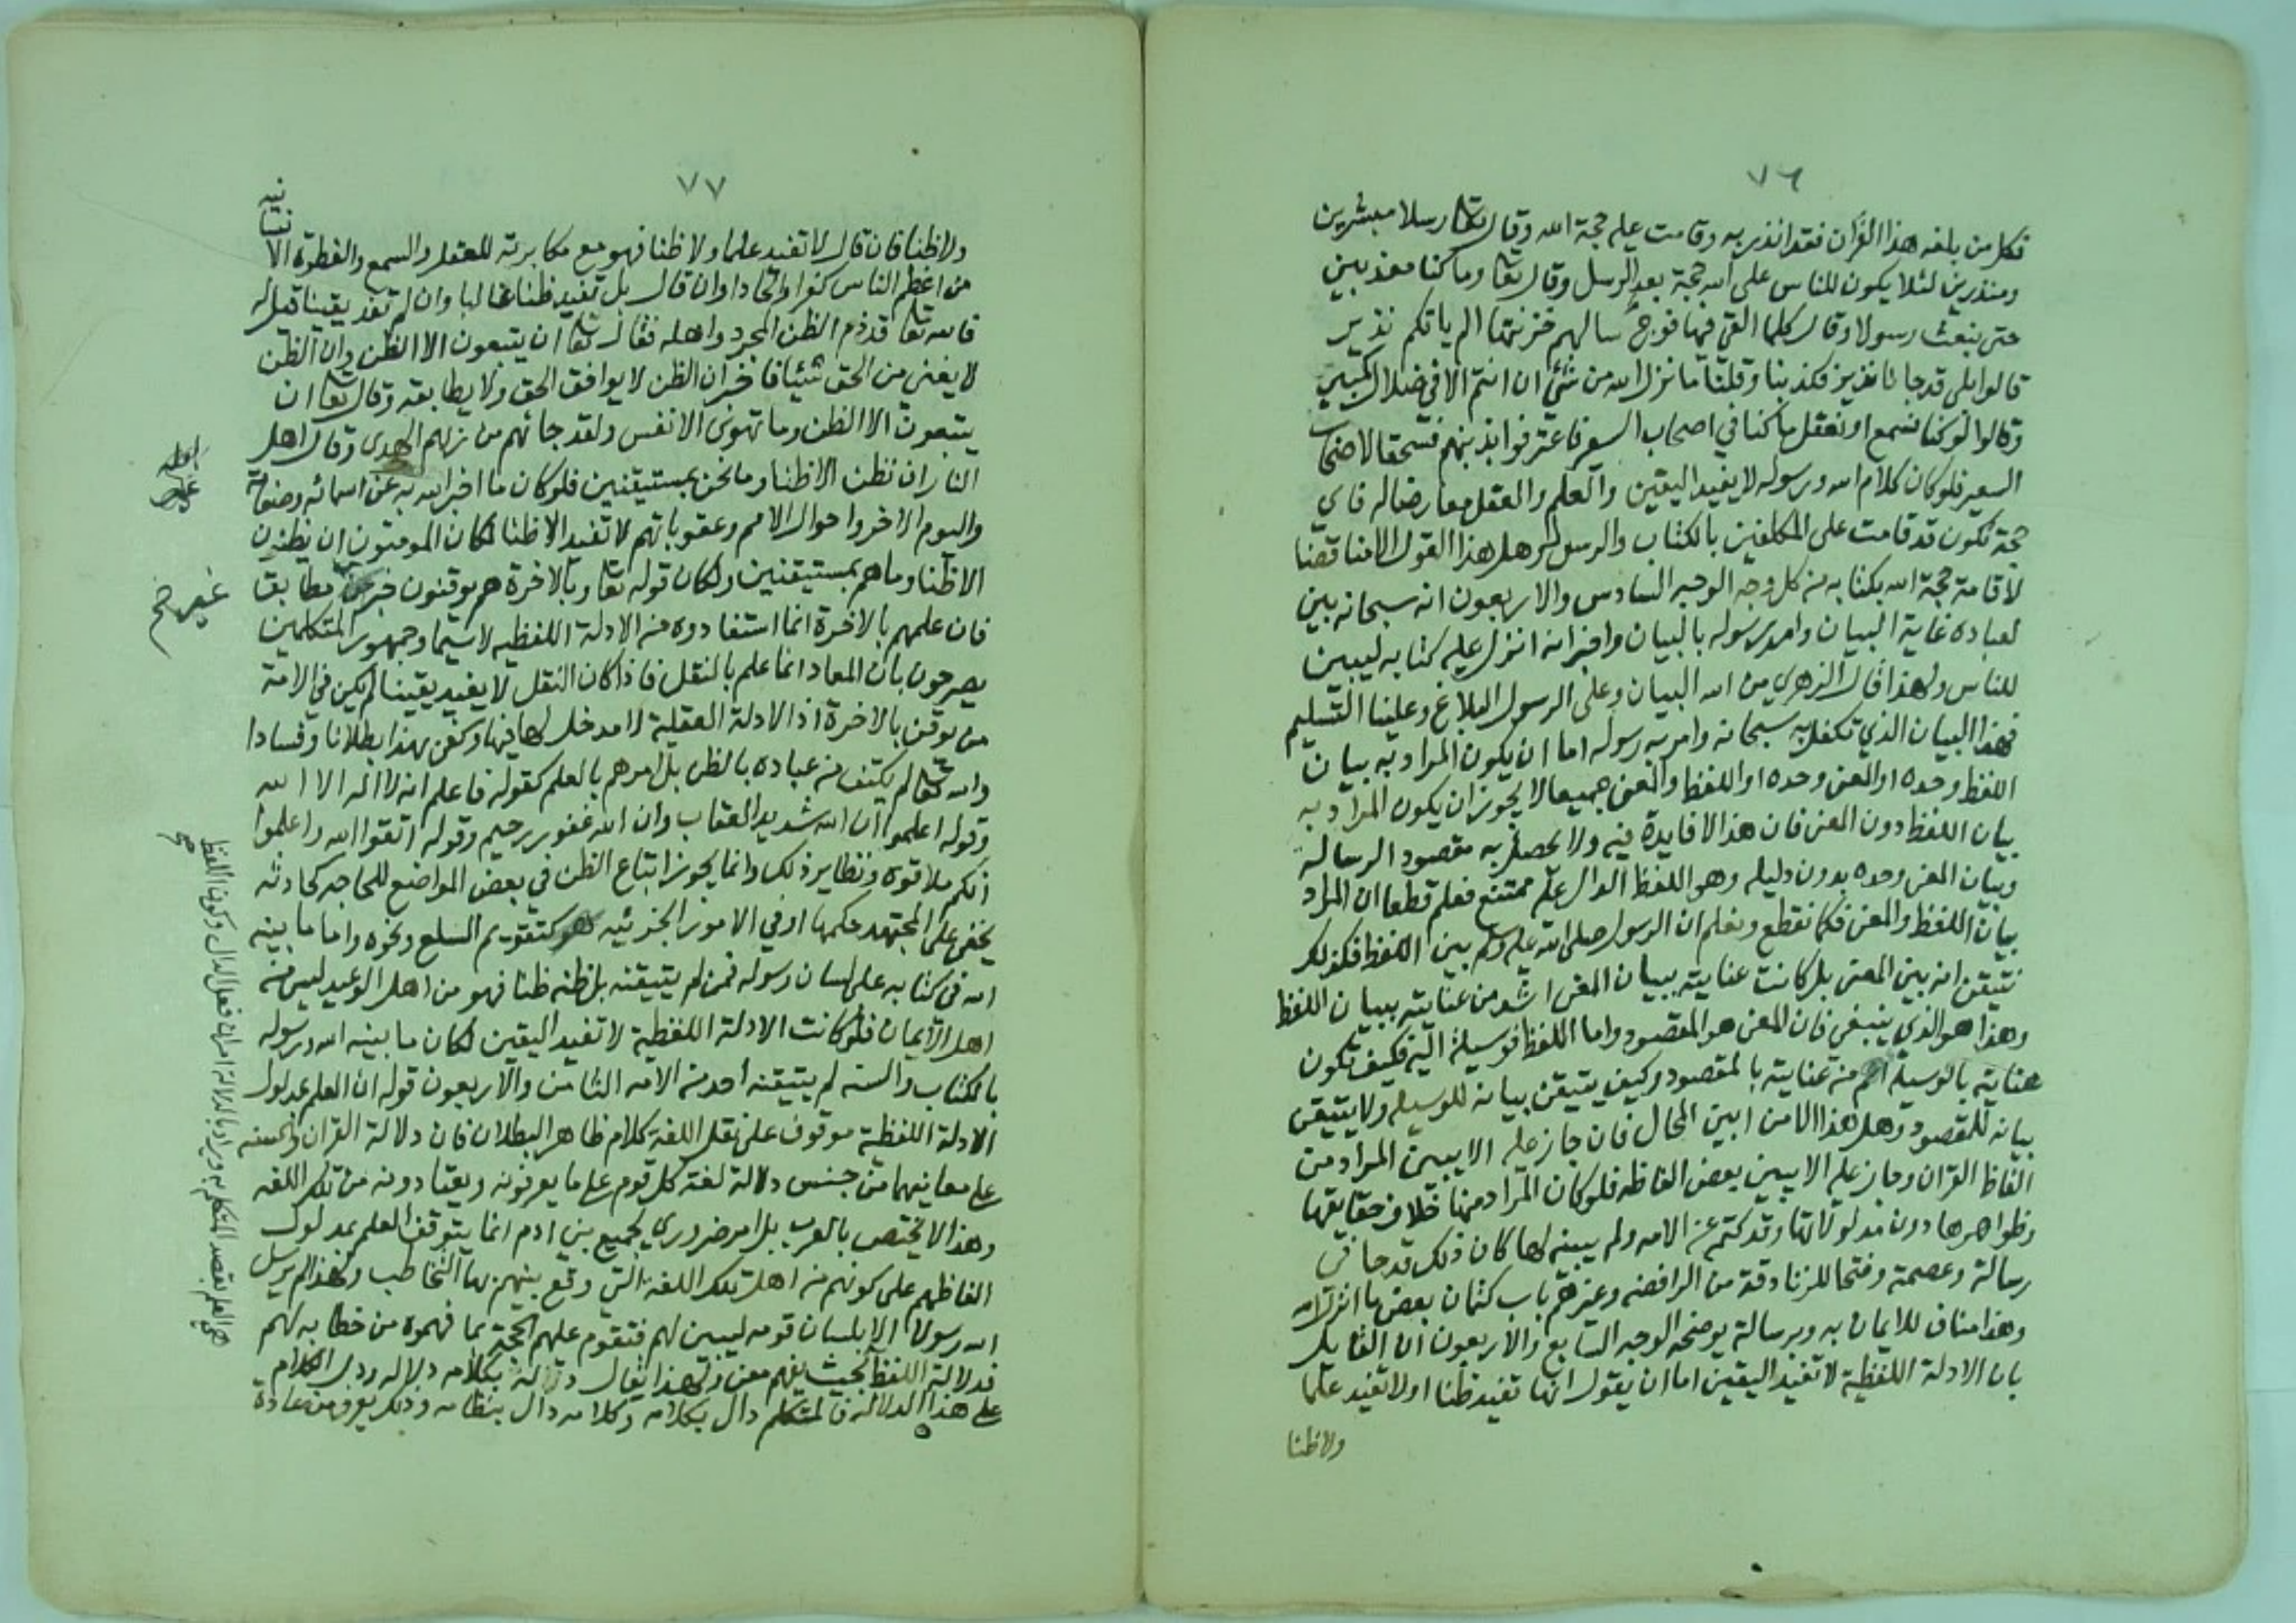 ٧٦
فكل من بلغه هذا القرآن فقد انذر به وقامت عليه حجة الله وقال تعا رسلا مبشرين
ومنذرين لئلا يكون للناس على الله حجة بعد الرسل وقال تعا وما كنا معذبين
حتى نبعث رسولا وقال كلما القي فيها فوج سالهم خزنتها الم ياتكم نذير
قالوا بلى قد جانا نذير فكذبنا وقلنا ما نزل الله من شئ ان انتم الا في ضلال كبير
وقالوا لو كنا نسمع او نعقل ما كنا في اصحاب السعير فاعترفوا بذنبهم فسحقا لاصحاب
السعير فلو كان كلام الله ورسوله لا يفيد اليقين والعلم والعقل معارضا له فاي
حجة تكون قد قامت على المكلفين بالكتاب والرسول وهل هذا القول الا مناقضا
لاقامة حجة الله بكتابه من كل وجه الوجه السادس والاربعون انه سبحانه بين
لعباده غاية البيان وامر رسوله بالبيان واخبر انه انزل عليه كتابه ليبين
للناس ولهذا قال الزهري من الله البيان وعلى الرسول البلاغ وعلينا التسليم
فهذا البيان الذي تكفل به سبحانه وامر به رسوله اما ان يكون المراد به بيان
اللفظ وحده او المعنى وحده او اللفظ والمعنى جميعا لا يجوز ان يكون المراد به
بيان اللفظ دون المعنى فان هذا لا فايدة فيه ولا يحصل به مقصود الرسالة
وبيان المعنى وحده بدون دليله وهو اللفظ الدال عليه ممتنع فعلم قطعا ان المراد
بيان اللفظ والمعنى فكما نقطع ونعلم ان الرسول صلى الله عليه وسلم بين اللفظ فكذلك
نتيقن انه بين المعنى بل كانت عنايته ببيان المعنى اشد من عنايته ببيان اللفظ
وهذا هو الذي ينبغي فان المعنى هو المقصود واما اللفظ فوسيلة اليه فكيف تكون
عنايته بالوسيلة اهم من عنايته بالمقصود وكيف يتيقن بيانه للوسيلة ولا يتيقن
بيانه للمقصود وهل هذا الا من ابين المحال فان جاز عليه الا يبين المراد من
الفاظ القران وجاز عليه الا يبين بعض الفاظه فلو كان المراد منها خلاف حقايقها
وظواهرها دون مدلولاتها وقد كتمه عن الامه ولم يبينه لها كان ذلك قدحا في
رسالته وعصمته وفتحا للزنادقة من الرافضه وغيرهم باب كتمان بعض ما انزل الله
وهذا مناف للايمان به وبرسالته يوضحه الوجه السابع والاربعون ان القايل
بان الادلة اللفظية لا تفيد اليقين اما ان يقول انها تفيد ظنا او لا تفيد علما
ولا ظنا
٧٧
ولا ظنا فان قال لا تفيد علما ولا ظنا فهو مع مكابرته للعقل والسمع والفطرة الانسانيه
من اعظم الناس كفرا والحادا وان قال بل تفيد ظنا غالبا وان لم تفد يقينا قيل له
فالله تعا قد ذم الظن المجرد واهله فقال تعا ان يتبعون الا الظن وان الظن
لا يغني من الحق شيئا فاخبر ان الظن لا يوافق الحق ولا يطابقه وقال تعا ان
يتبعون الا الظن وما تهوى الانفس ولقد جائهم من ربهم الهدى وقال اهل
النار ان نظن الا ظنا وما نحن بمستيقنين فلو كان ما اخبر الله به عن اسمائه وصفاته
واليوم الاخر واحوال الامم وعقوباتهم لا تفيد الا ظنا لكان المومنون ان يظنون
الا ظنا وما هم بمستيقنين ولكان قوله تعا وبالاخرة هم يوقنون خبر مطابق
غير صح
فان علمهم بالاخرة انما استفادوه من الادلة اللفظيه لاسيما وجمهور المتكلمين
يصرحون بان المعاد انما علم بالنقل فاذا كان النقل لا يفيد يقينا لم يكن في الامة
من يوقن بالاخرة اذ الادلة العقلية لا مدخل لها فيها وكفى بهذا بطلانا وفسادا
والله تعا لم يكتف من عباده بالظن بل امرهم بالعلم كقوله فاعلم انه لا اله الا الله
وقوله اعلموا ان الله شديد العقاب وان الله غفور رحيم وقوله اتقوا الله واعلموا
انكم ملاقوه ونظاير ذلك وانما يجوز اتباع الظن في بعض المواضع للحاجه كحادثه
يخفى على المجتهد حكمها او في الامور الجزئيه كتقويم السلع ونحوه واما ما بينه
الله في كتابه على لسان رسوله فمن لم يتيقنه بل ظنه ظنا فهو من اهل الوعيد ليس من
اهل الايمان فلو كانت الادلة اللفظية لا تفيد اليقين لكان ما بينه الله ورسوله
بالكتاب والسنه لم يتيقنه احد من الامه الثامن والاربعون قوله ان العلم بمدلول
الادلة اللفظية موقوف على نقل اللغة كلام ظاهر البطلان فان دلالة القران والسنه
على معانيهما من جنس دلالة لغة كل قوم على ما يعرفونه ويعتادونه من تلك اللغه
وهذا لا يختص بالعرب بل امر ضروري لجميع بني ادم انما يتوقف العلم بمدلول
الفاظهم على كونهم من اهل تلك اللغه التي وقع بينهم بها التخاطب ولهذا لم يرسل
الله رسولا الا بلسان قومه ليبين لهم فتقوم عليهم الحجة بما فهموه من خطابه لهم
فدلالة اللفظ بحيث يفهم معنى ولهذا يقال بكلامه دلاله ودل الكلام
على هذا الدلاله فالمتكلم دال بكلامه وكلامه دال بنظامه وذلك يعرف من عادة
هي العلم بقصد المتكلم به ويراد بالدلالة امران فعل الدال وكون اللفظ